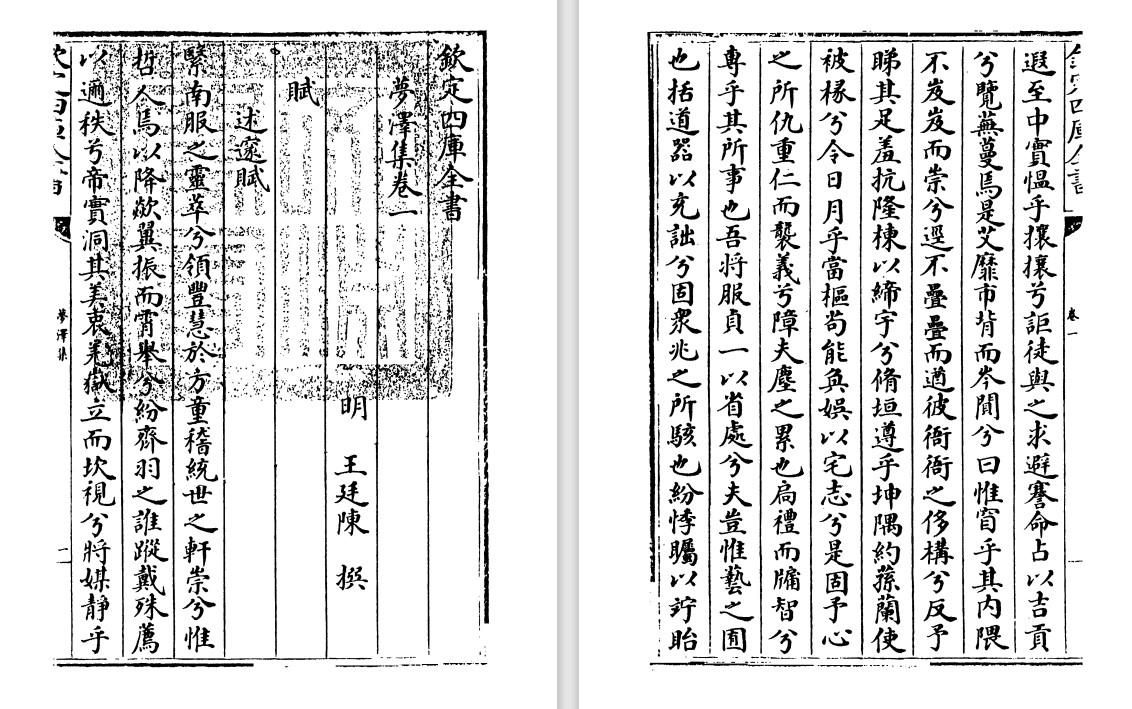 欽定四庫全書
夢澤集卷一
明 王廷陳 撰
賦
述邃賦
繄南服之靈萃兮領豐慧於方童稽統世之軒崇兮惟
哲人焉以降欻翼振而霄舉兮紛齊羽之誰蹤戴殊薦
以邇秩兮帝實洞其美衷羌嶽立而坎視兮將媒靜乎
夢澤集
一
卷一
遐至中實愠乎攘攘兮詎徒與之求避謇命占以吉貢
兮覽蕪蔓焉是艾靡市背而岑閒兮曰惟窅乎其内隈
不岌岌而崇兮逕不疊疊而遒彼衙衙之侈構兮反予
睇其足羞抗隆棟以締宇兮脩垣遵乎坤隅約蓀蘭使
被椽兮令日月乎當樞苟能奐娯以宅志兮是固予心
之所仇重仁而襲義兮障夫塵之累也扄禮而牖智兮
專乎其所事也吾將服貞一以省處兮夫豈惟藝之囿
也括道器以充詘兮固衆兆之所駭也紛悸矚以竚眙